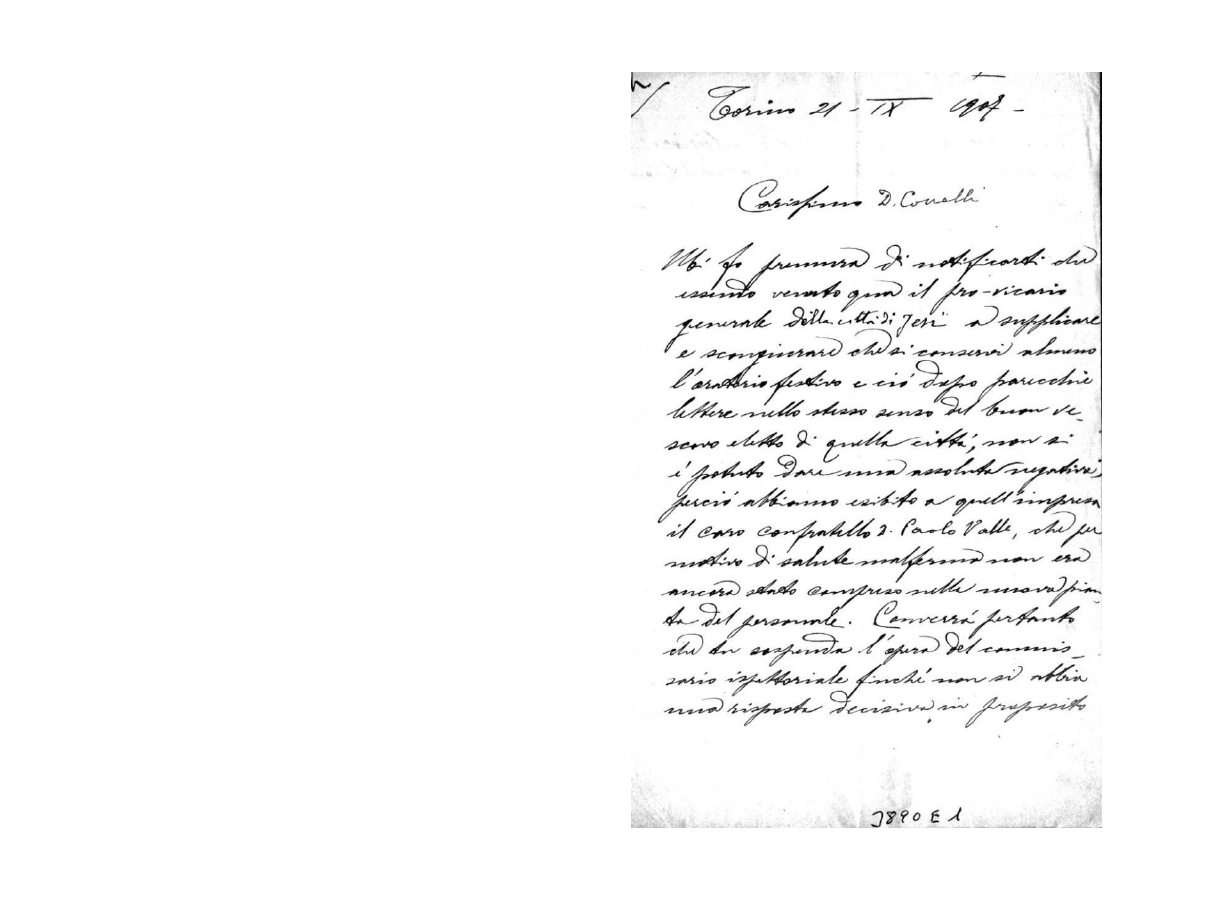 Torino 21 - IX 1907 -
Carissimo D. Conelli
Mi fo premura di notificarti che
essendo venuto qua il pro-vicario
generale della città di Jesi a supplicare
e scongiurare che si conservi almeno
l'oratorio festivo e ció dopo parecchie
lettere nello stesso senso del buon ve-
scovo eletto di quella cittá, non si
é potuto dare una assoluta negativa;
perció abbiamo esibito a quell'impresa
il caro confratello D. Paolo Valle, che per
motivo di salute malferma non era
ancora stato compreso nella nuova pian-
ta del personale. Converrá pertanto
che tu sospenda l'opera del commis-
sario ispettoriale finché non si abbia
una risposta decisiva in proposito
3890 E 1